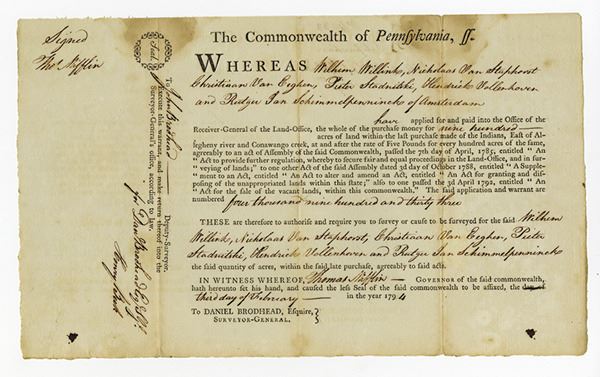 Signed
Tho.s Mifflin
Seal.
To John Brodhead Deputy-Surveyor.
Execute this warrant, and make return thereof into the
Surveyor-General's office, according to law.
for Dan.l Brodhead Esq.r S. G.
The Commonwealth of Pennsylvania, ss.
WHEREAS Wilhem Willink, Nicholaas Van Staphorst
Christiaan Van Eeghen, Pieter Stadnitski, Hendrick Vollenhoven
and Rutger Jan Schimmelpenninck of Amsterdam
have applied for and paid into the Office of the
Receiver-General of the Land-Office, the whole of the purchase money for nine hundred
acres of land within the last purchase made of the Indians, East of Al-
legheny river and Conawango creek, at and after the rate of Five Pounds for every hundred acres of the same,
agreeably to an act of Assembly of the said Commonwealth, passed the 7th day of April, 1785, entitled "An
Act to provide further regulation, whereby to secure fair and equal proceedings in the Land-Office, and in sur-
veying of lands;" to one other Act of the said Assembly dated 3d day of October 1788, entitled "A Supple-
ment to an Act, entitled "An Act to alter and amend an Act, entitled "An Act for granting and dispo-
sing of the unappropriated lands within this state;" also to one passed the 3d April 1792, entitled "An
Act for the sale of the vacant lands, within this commonwealth." The said application and warrant are
numbered four thousand nine hundred and thirty three
THESE are therefore to authorise and require you to survey or cause to be surveyed for the said Wilhem
Willink, Nicholaas Van Staphorst, Christiaan Van Eeghen, Pieter
Stadnitski, Hendrick Vollenhoven and Rutger Jan Schimmelpenninck
the said quantity of acres, within the said late purchase, agreeably to said acts.
IN WITNESS WHEREOF, Thomas Mifflin GOVERNOR of the said commonwealth,
hath hereunto set his hand, and caused the less Seal of the said commonwealth to be affixed, the day of
third day of February in the year 1794
To DANIEL BRODHEAD, Esquire,
SURVEYOR-GENERAL.